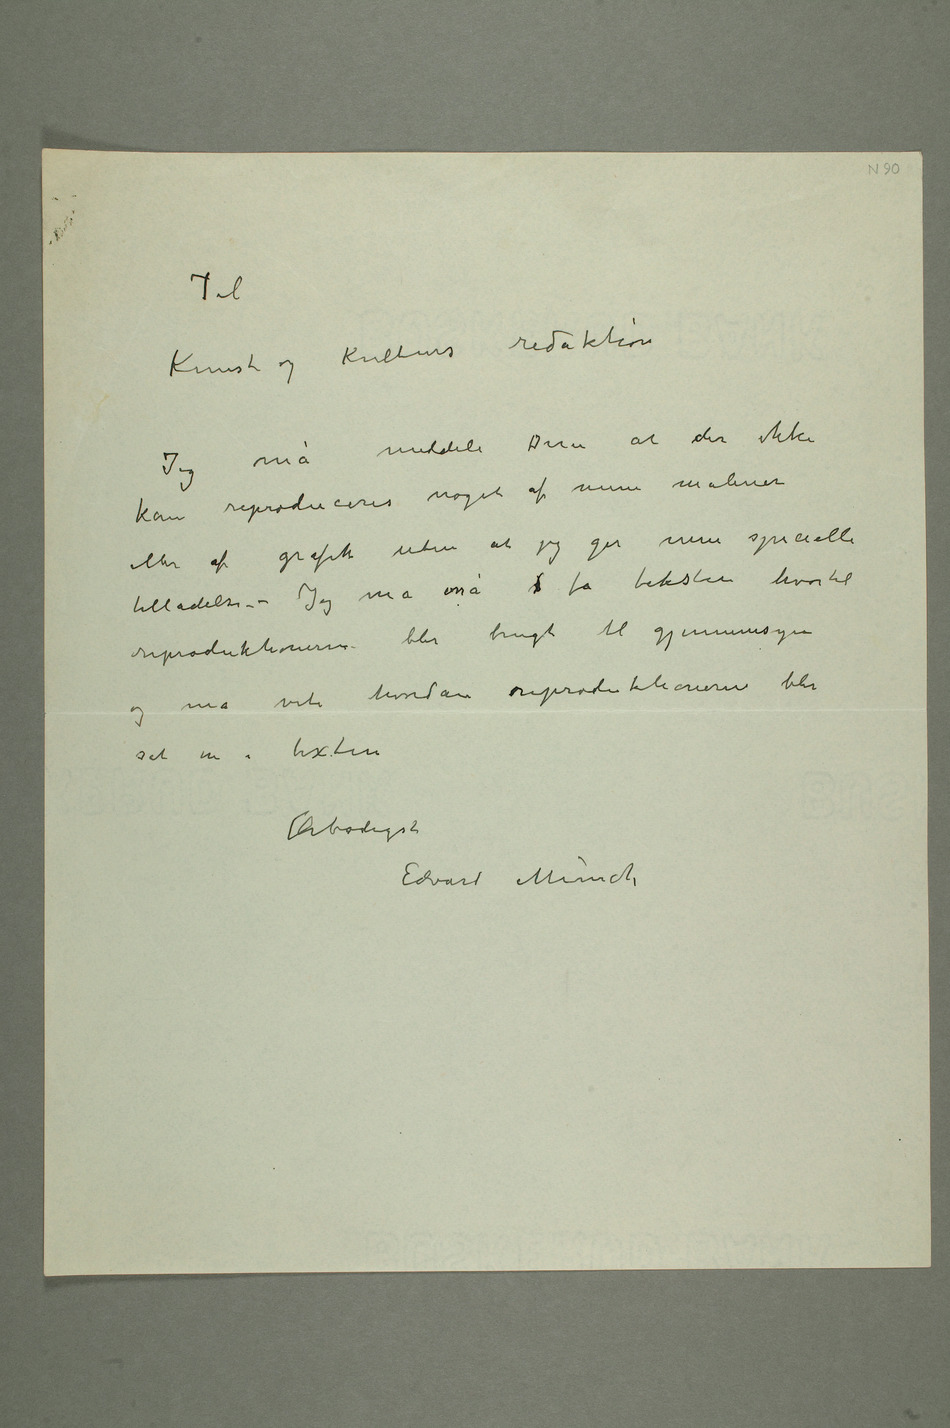 N 90
Til
Kunst og Kulturs redaktion
Jeg må meddele Dere at der ikke
kan reproduceres noget af mine malerier
eller af grafik uden at jeg gir min specielle
tilladelse. – Jeg må også få teksten hvortil
reproduktionerne blir brugt til gjennemsyn
og må vite hvordan reproduktionerne blir
sat in i texten
Ærbødigst
Edvard Munch